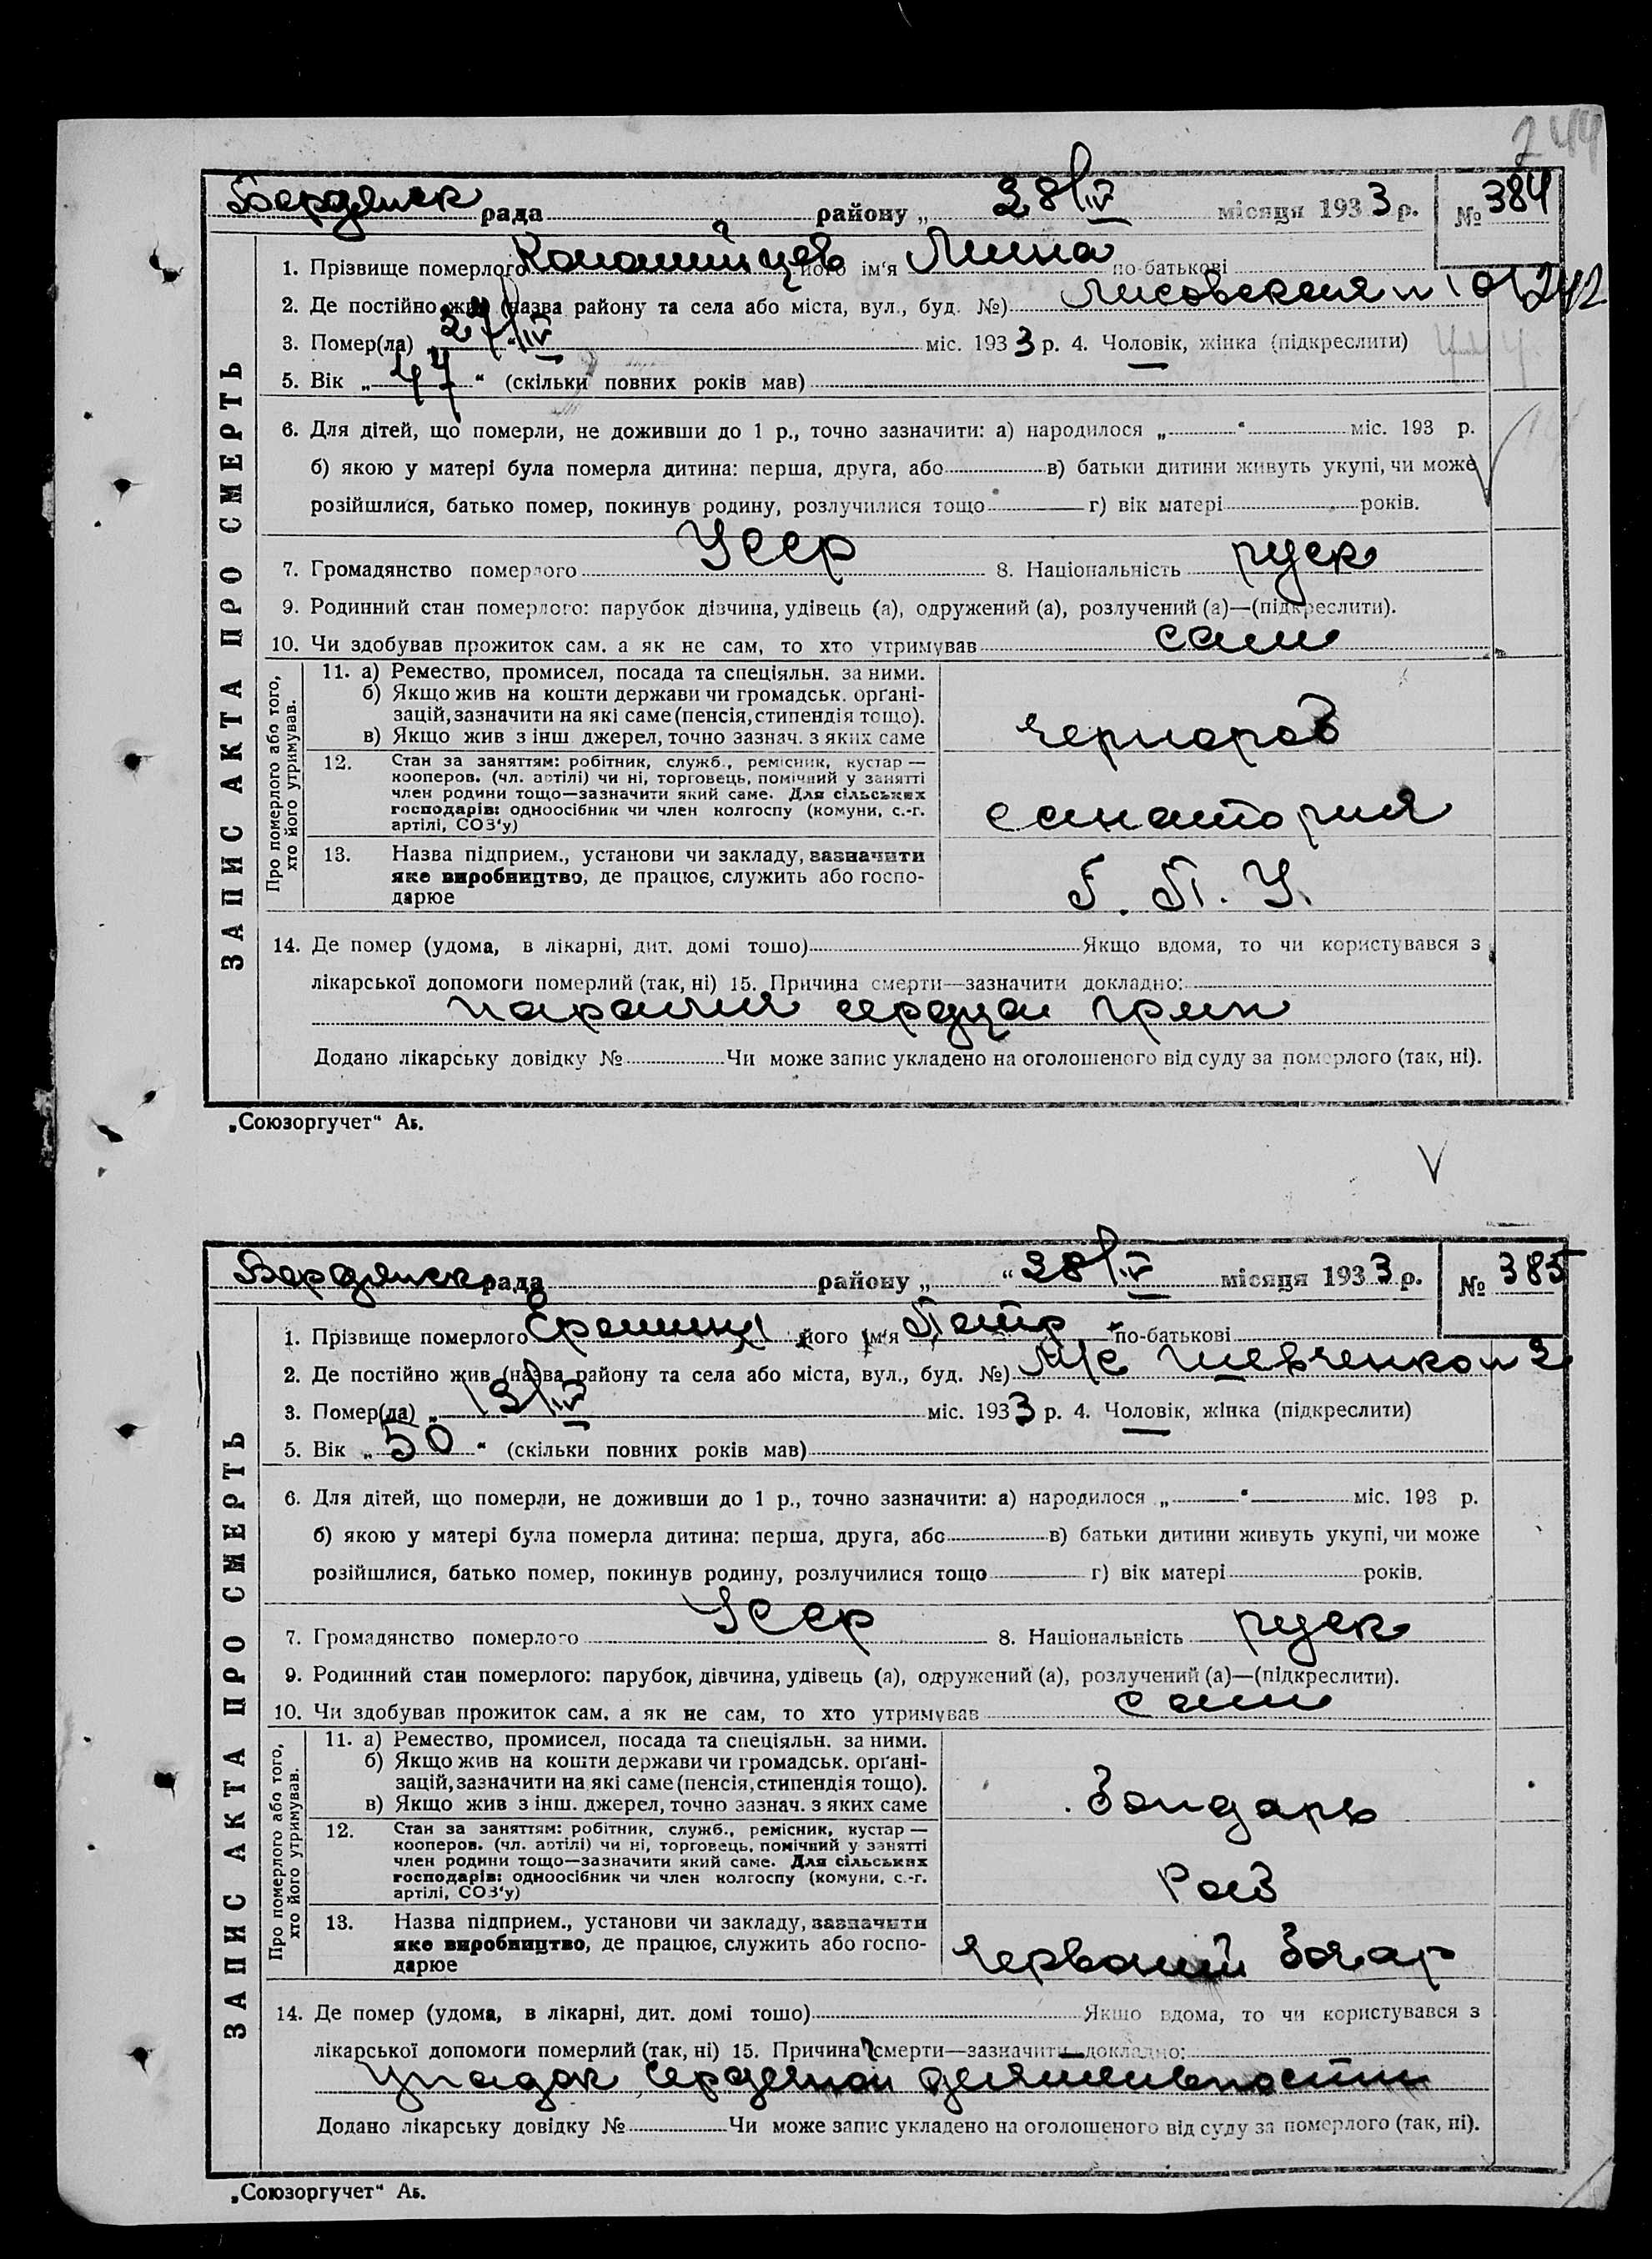 244
Бердянск рада району „ 28/IV місяця 1933 р. № 384
1. Прізвище померлого Коломийцев його ім'я по-батькові
2. Де постійно жив (назва району та села або міста, вул., буд. №) Лисовская
3. Помер(ла) „ 27/IV міс. 1933 р. 4. Чоловік, жінка (підкреслити)
5. Вік „ 47 “ (скільки повних років мав)
6. Для дітей, що померли, не доживши до 1 р., точно зазначити: а) народилося „ “ міс. 193 р.
б) якою у матері була померла дитина: перша, друга, або в) батьки дитини живуть укупі, чи може
розійшлися, батько помер, покинув родину, розлучилися тощо г) вік матері років.
7. Громадянство померлого Усср 8. Національність руск
9. Родинний стан померлого: парубок дівчина, удівець (а), одружений (а), розлучений (а)—(підкреслити).
10. Чи здобував прожиток сам. а як не сам, то хто утримував сам
ЗАПИС АКТА ПРО СМЕРТЬ
Про померлого або того, хто його утримував.
11. а) Ремество, промисел, посада та спеціяльн. за ними.
б) Якщо жив на кошти держави чи громадськ. орґані-
зацій, зазначити на які саме (пенсія, стипендія тощо).
в) Якщо жив з інш джерел, точно зазнач. з яких саме
чернораб
12. Стан за заняттям: робітник, служб., ремісник, кустар —
кооперов. (чл. артілі) чи ні, торговець, помічний у занятті
член родини тощо—зазначити який саме. Для сільських
господарів: одноосібник чи член колгоспу (комуни, с.-г.
артілі, СОЗ'у)
санатория
13. Назва підприєм., установи чи закладу, зазначити
яке виробництво, де працює, служить або госпо-
дарює
Г. П. У.
14. Де помер (удома, в лікарні, дит. домі тощо) Якщо вдома, то чи користувався з
лікарської допомоги померлий (так, ні) 15. Причина смерти—зазначити докладно:
паралич сердца
Додано лікарську довідку № Чи може запис укладено на оголошеного від суду за померлого (так, ні).
„Союзоргучет“ Аб.
Бердянск рада району „ “ 28/IV місяця 1933 р. № 385
1. Прізвище померлого його ім'я Петр по-батькові
2. Де постійно жив (назва району та села або міста, вул., буд. №) Шевченко
3. Помер(ла) „ міс. 1933 р. 4. Чоловік, жінка (підкреслити)
5. Вік „ 50 “ (скільки повних років мав)
6. Для дітей, що померли, не доживши до 1 р., точно зазначити: а) народилося „ “ міс. 193 р.
б) якою у матері була померла дитина: перша, друга, або в) батьки дитини живуть укупі, чи може
розійшлися, батько помер, покинув родину, розлучилися тощо г) вік матері років.
7. Громадянство померлого Усср 8. Національність руск
9. Родинний стан померлого: парубок, дівчина, удівець (а), одружений (а), розлучений (а)—(підкреслити).
10. Чи здобував прожиток сам. а як не сам, то хто утримував сам
ЗАПИС АКТА ПРО СМЕРТЬ
Про померлого або того, хто його утримував.
11. а) Ремество, промисел, посада та спеціяльн. за ними.
б) Якщо жив на кошти держави чи громадськ. орґані-
зацій, зазначити на які саме (пенсія, стипендія тощо).
в) Якщо жив з інш. джерел, точно зазнач. з яких саме
Бондарь
12. Стан за заняттям: робітник, служб., ремісник, кустар —
кооперов. (чл. артілі) чи ні, торговець, помічний у занятті
член родини тощо—зазначити який саме. Для сільських
господарів: одноосібник чи член колгоспу (комуни, с.-г.
артілі, СОЗ'у)
Раб
13. Назва підприєм., установи чи закладу, зазначити
яке виробництво, де працює, служить або госпо-
дарює
Червоний Бочар
14. Де помер (удома, в лікарні, дит. домі тощо) Якшо вдома, то чи користувався з
лікарської допомоги померлий (так, ні) 15. Причина смерти—зазначити докладно:
Упадок сердечной деятельности
Додано лікарську довідку № Чи може запис укладено на оголошеного від суду за померлого (так, ні).
„Союзоргучет“ Аб.